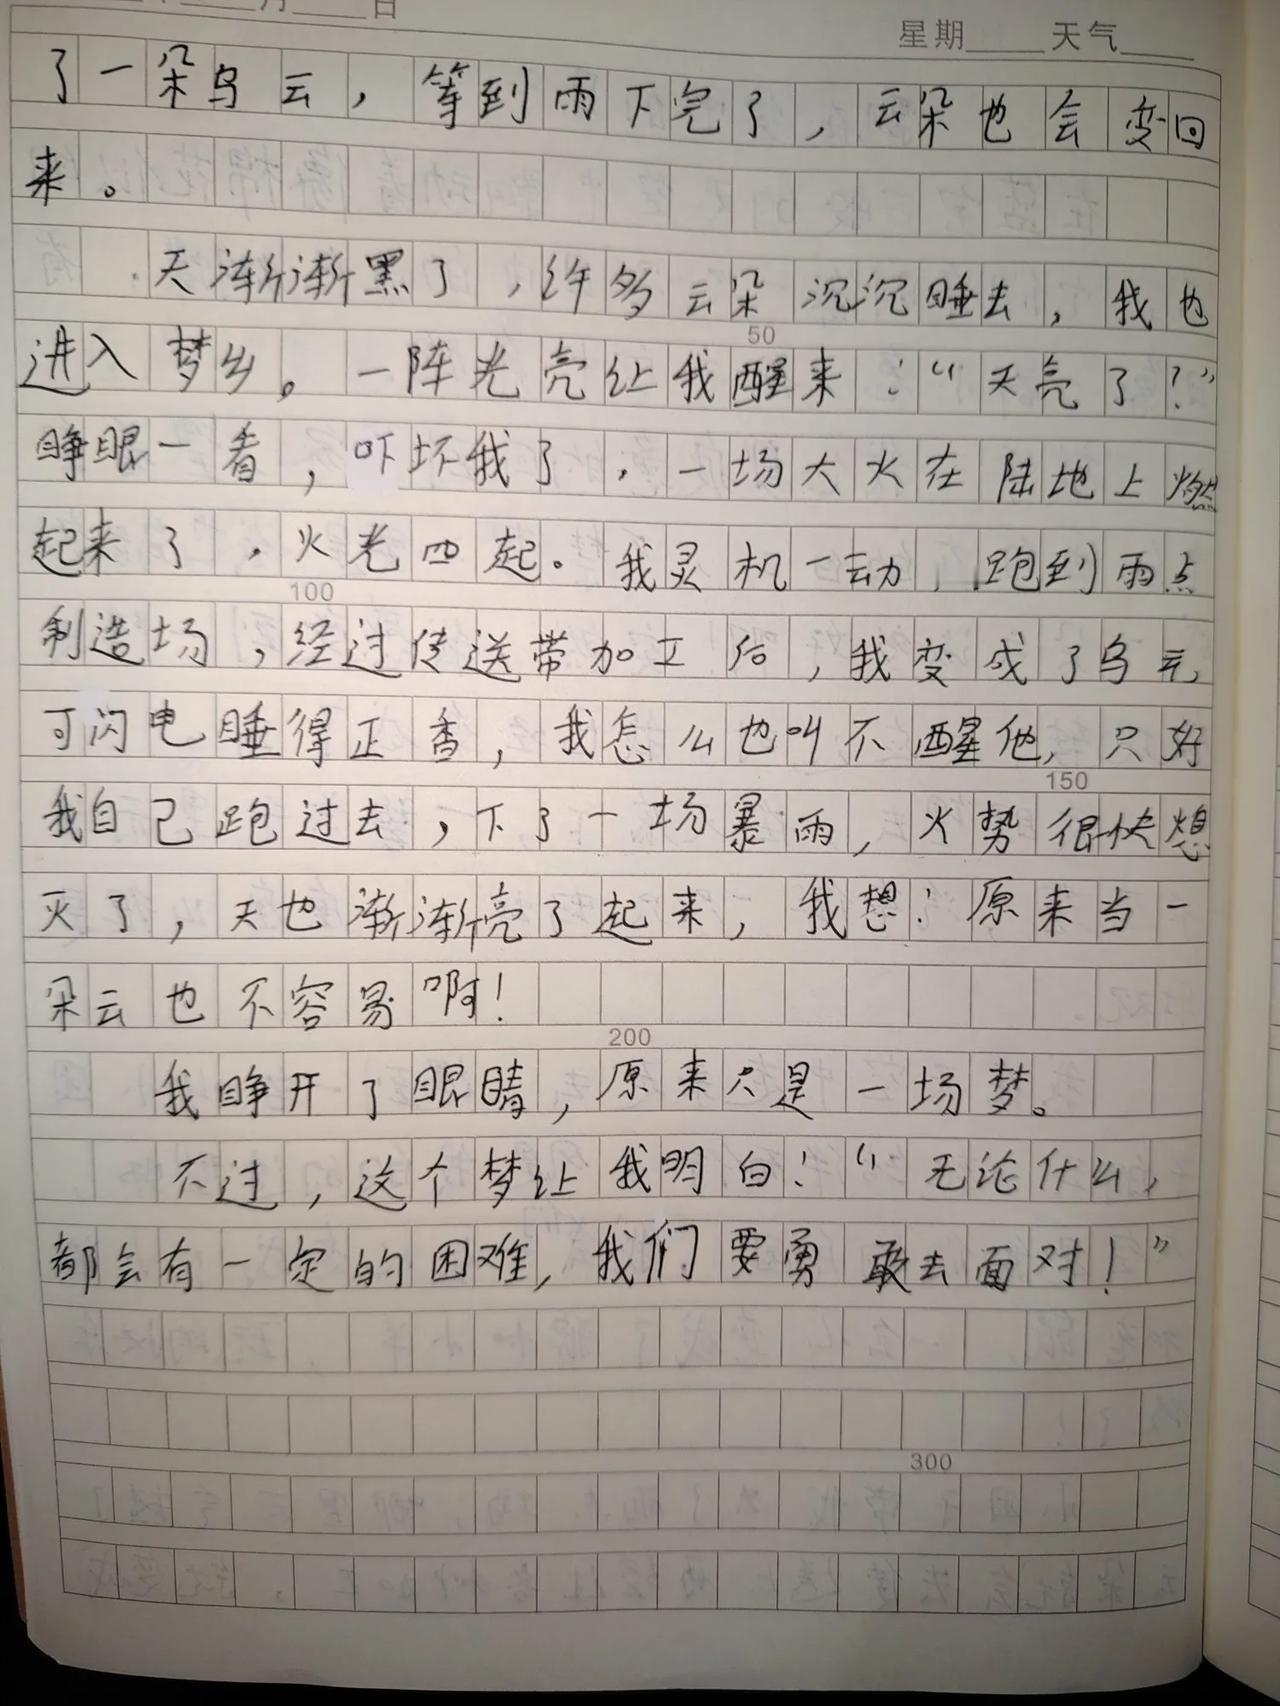 月 日
星期 天气
了一朵乌云，等到雨下完了，云朵也会变回
来。
天渐渐黑了，许多云朵沉沉睡去，我也
50
进入梦乡。一阵光亮让我醒来：“天亮了？”
睁眼一看，吓坏我了，一场大火在陆地上燃
起来了，火光四起。我灵机一动，跑到雨点
100
制造场，经过传送带加工后，我变成了乌云，
可闪电睡得正香，我怎么也叫不醒他，只好
150
我自己跑过去，下了一场暴雨，火势很快熄
灭了，天也渐渐亮了起来，我想：原来当一
朵云也不容易啊！
200
我睁开了眼睛，原来只是一场梦。
不过，这个梦让我明白：“无论什么，
都会有一定的困难，我们要勇敢去面对！”
300